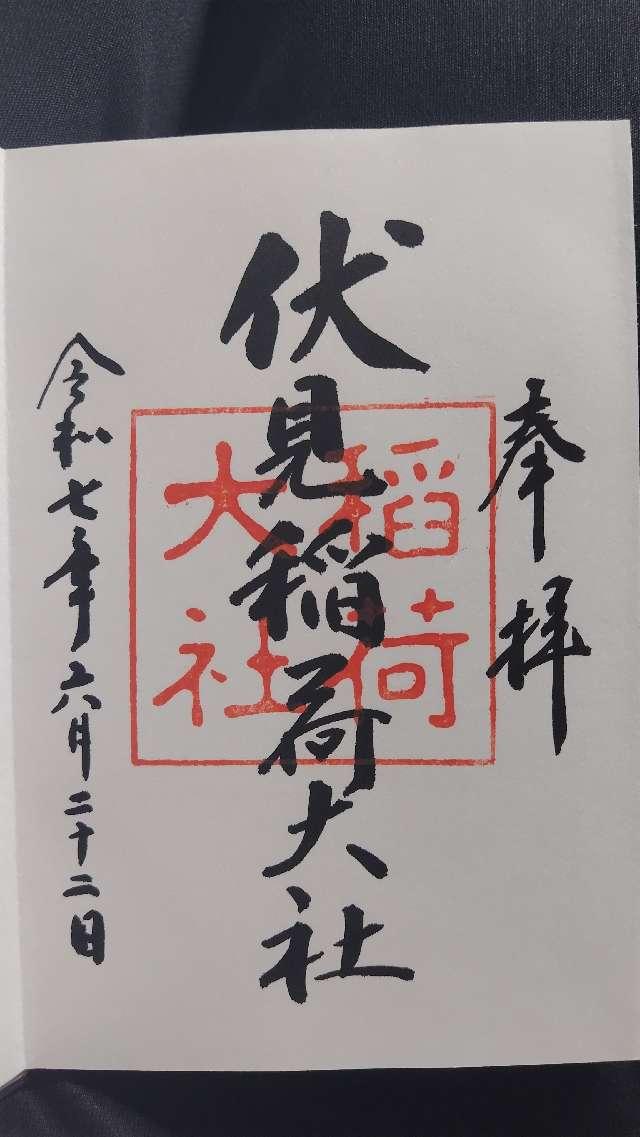 奉拝
伏見稲荷大社
稲荷
大社
令和七年六月二十二日